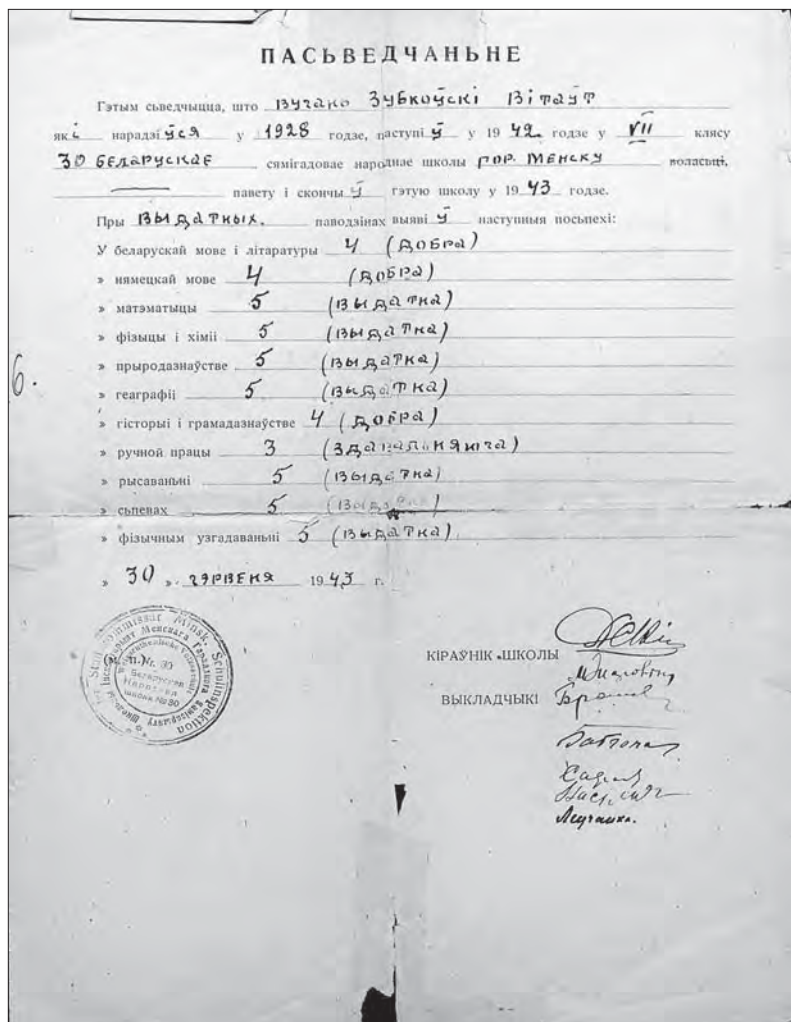 ПАСЬВЕДЧАНЬНЕ
Гэтым сьведчыцца, што вучань Зубкоўскі Вітаўт
які нарадзіўся у 1928 годзе, паступіў у 1942 годзе у VII клясу
30 БЕЛАРУСКАЕ сямігадовае народнае школы гор. МЕНСКУ воласьці,
павету і скончыў гэтую школу у 1943 годзе.
Пры выдатных. паводзінах выявіў наступныя посьпехі:
У беларускай мове і літаратуры 4 (добра)
» нямецкай мове 4 (добра)
» матэматыцы 5 (выдатна)
» фізыцы і хіміі 5 (выдатна)
» прыродазнаўстве 5 (выдатна)
6.
» геаграфіі 5 (выдатна)
» гісторыі і грамадазнаўстве 4 (добра)
» ручной працы 3
» рысаваньні 5 (выдатна)
» сьпевах 5 (выдатна)
» фізычным узгадаваньні 5 (выдатна)
» 30 » чэрвеня 1943 г.
Stadtkommissar Minsk, Schulinspektion
Школьны Інспэктарыят Менскага Гарадзкога Камісарыяту
Weissruthenische Volksschule
Nr. 30
Беларуская
Народная
школа №30
КІРАЎНІК ШКОЛЫ
ВЫКЛАДЧЫКІ